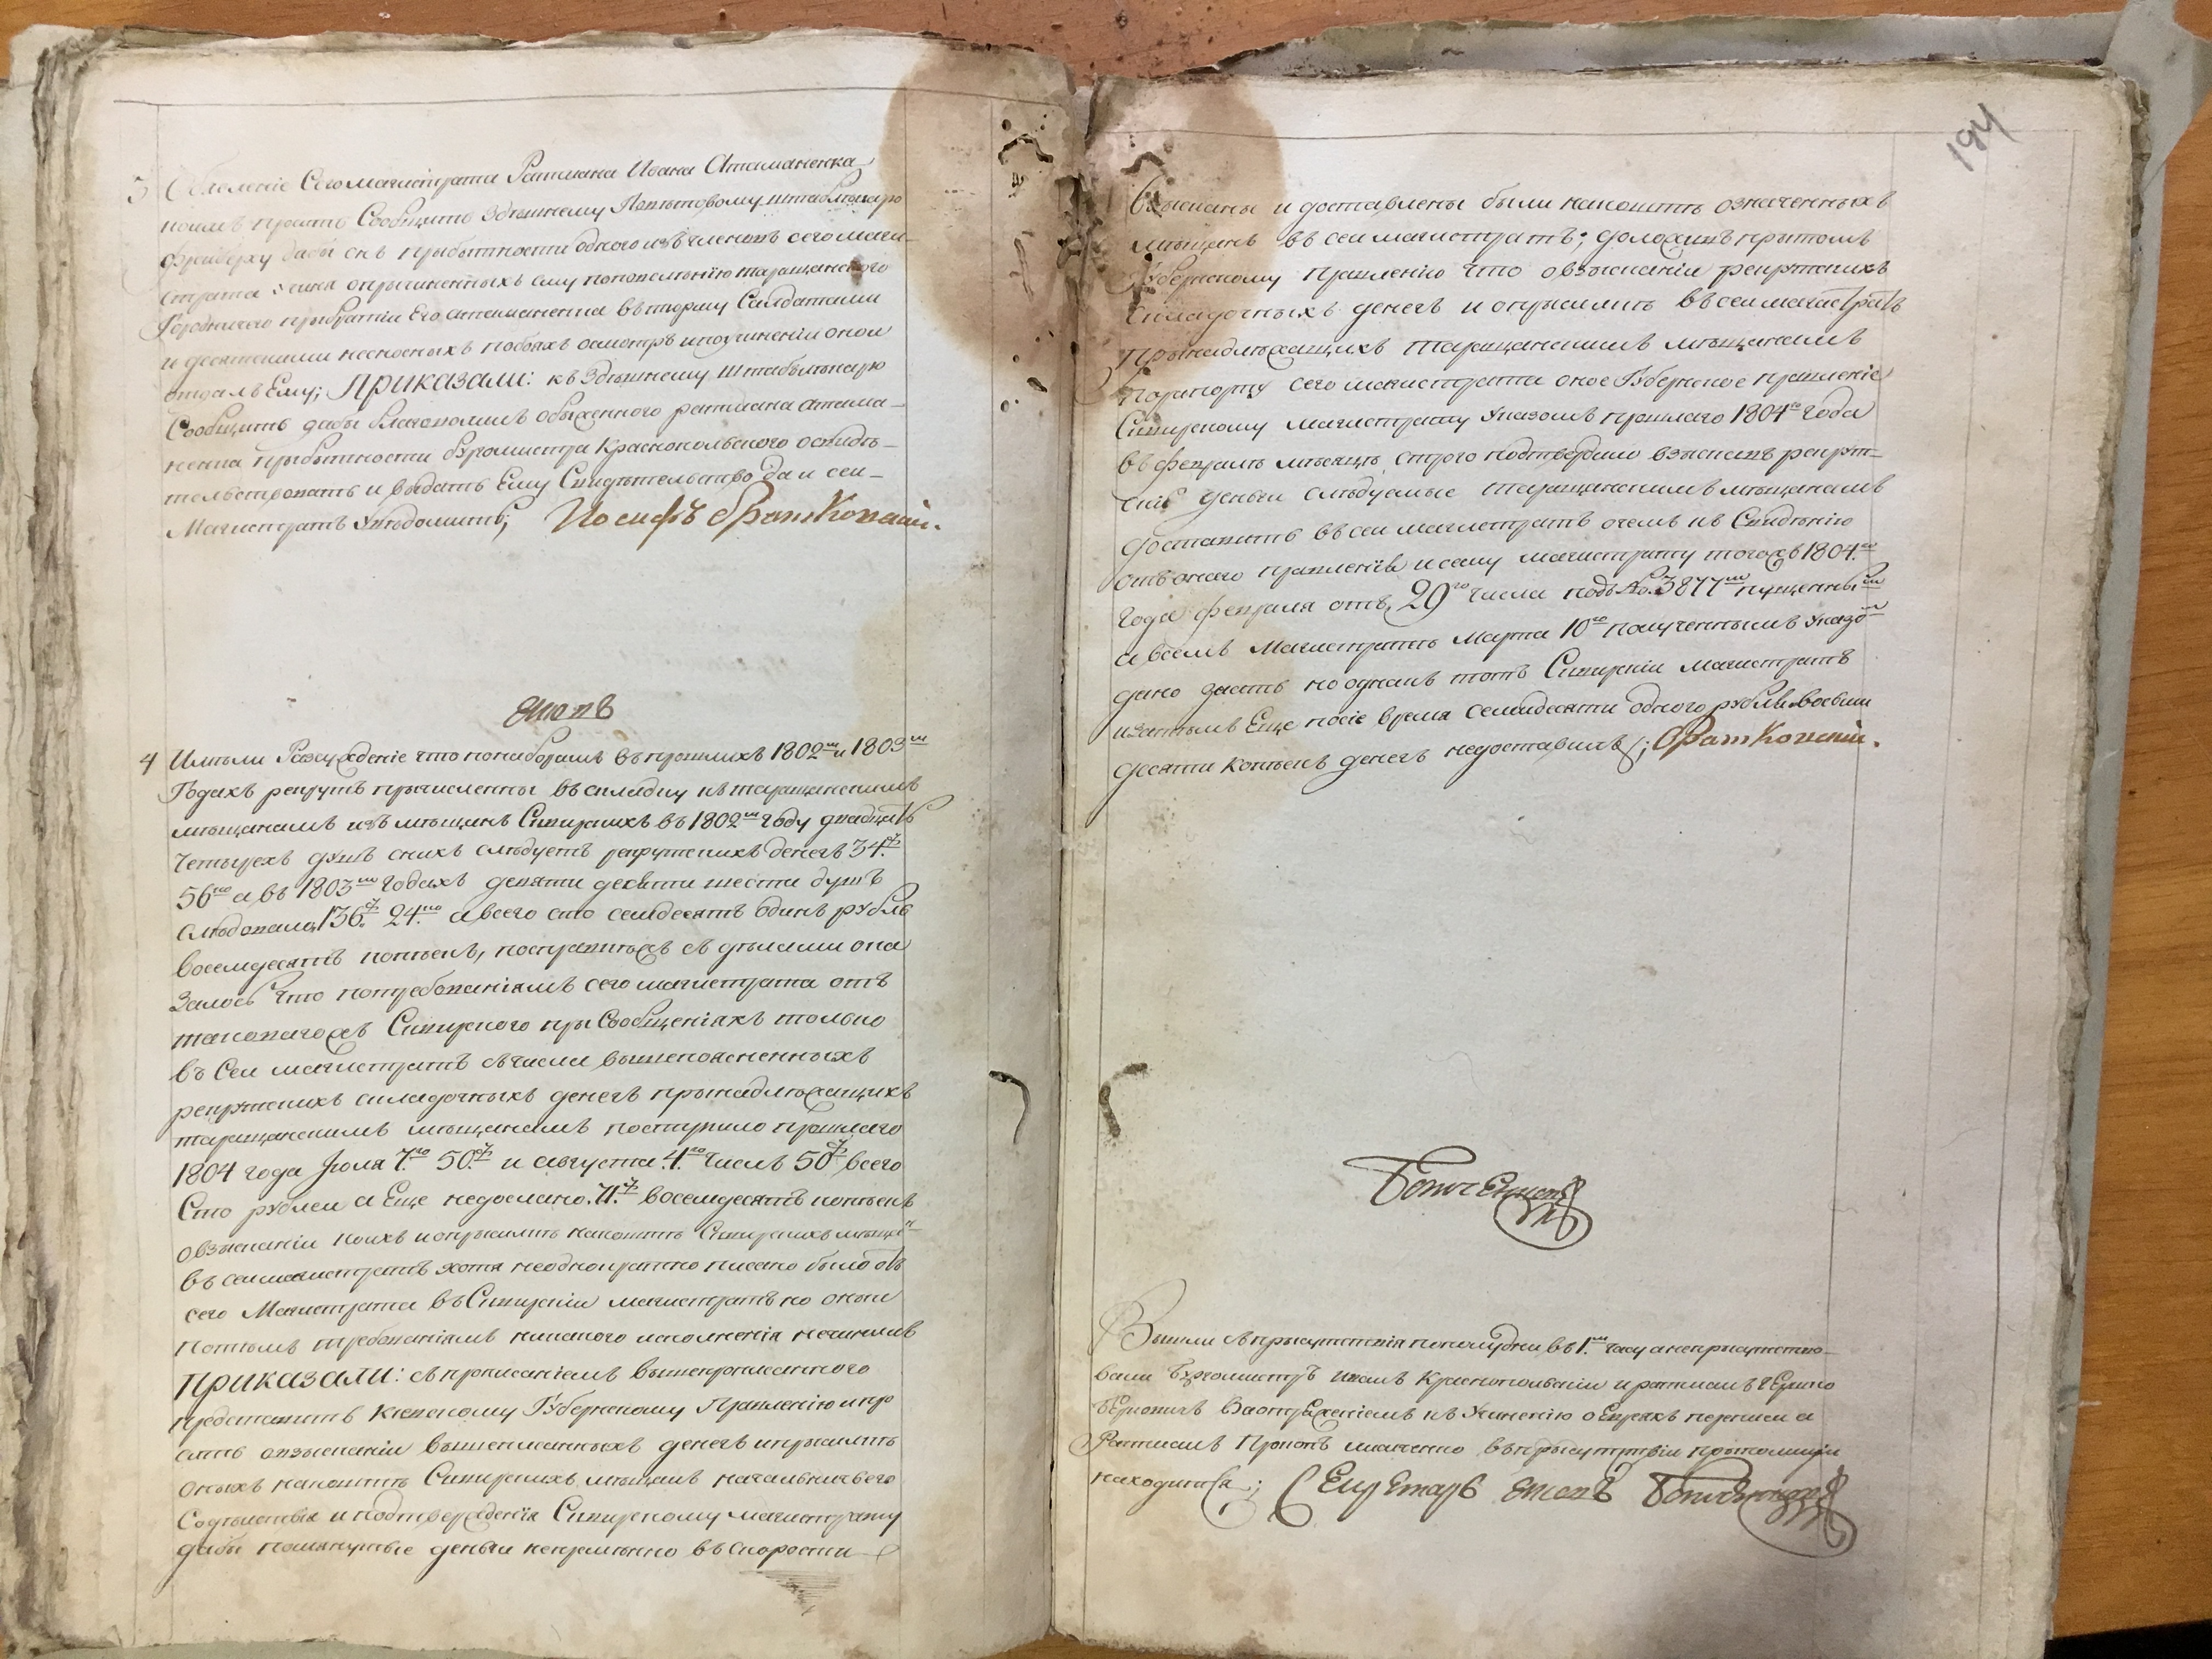 3 Объявленіе Сего магистрата Ратмана Ивана Атаманенка
коимъ проситъ Сообщить Здѣшнему Повѣтовому штаблѣкарю
Фрейберху дабы онъ прибытности одного изъ членовъ сего маги-
страта учина опричиненныхъ ему поповелѣнію таращанского
Городничего прибратіи Его атаманенка въ тюрму Салдатами
и десятскими несносныхъ побояхъ осмотръ и поучиненіи онои
отдалъ Ему; ПРИКАЗАЛИ: къ Здѣшнему штабълѣкарю
Сообщить дабы благоволилъ обиженного ратмана атама-
ненка прибытности бургомистра Краснопольского освидѣ-
тельствовать и выдать Ему Свидѣтельство да и сеи
Магистратъ Увѣдомить; Иосифъ Братковскій.
Яшовъ
4 Имѣли Разсужденіе что понаборамъ въ прошлихъ 1802м и 1803м
Годахъ рекрутъ причисленны въ складку къ таращанскимъ
мѣщанамъ изъ мѣщанъ Сквирскихъ въ 1802м Году двадцать
Четырехъ душъ сникъ слѣдуетъ рекрутскихъ денегъ 34р
56ко а въ 1803м Годахъ девяти десяти шести душъ
слѣдовало 136р 24ко а всего сто семдесятъ одинъ рубль
восемдесятъ копѣекъ, посправкѣжъ съ дѣлами ока
залось что потребованіямъ сего магистрата отъ
таковагожъ Сквирского при Сообщеніахъ только
въ Сеи магистратъ съ числа вышепоясненныхъ
рекрутскихъ складочныхъ денегъ принадлѣжащихъ
таращанскимъ мѣщанамъ поступило прошлаго
1804 года Июля 7го 50р и августа 4го числъ 50р всего
Сто рублеи а Еще недослано 71р восемдесятъ копѣекъ
овзысканіи коихъ и оприсилкѣ накоштъ Сквирскихъ мѣщан
въ сеи магистратъ хотя неоднократно писано было отъ
сего Магистрата въ Сквирскіи магистратъ но онъи
потѣмъ требованіямъ никакого исполненія нечинилъ
ПРИКАЗАЛИ: съ прописаніемъ вышепрописанного
представить Кіевскому Губернскому Правленію и про
сить овзысканіи вышеписанныхъ денегъ и присилкѣ
оныхъ накоштъ Сквирскихъ мѣщанъ начальничего
Содѣиствія и подтвержденія Сквирскому магистрату
дабы помянутые деньги непремѣнно въ скорости
194
взысканы и доставлены были накоштъ означенныхъ
мѣщанъ въ сеи магистратъ; доложивъ притомъ
Губернскому правленію что овзысканіи рекрутскихъ
складочныхъ денегъ и оприсилкѣ въ сеи магистратъ
принадлѣжащихъ таращанскимъ мѣщанамъ
порапорту сего магистрата оное Губернское правленіе
Сквирскому магистрату Указомъ прошлаго 1804го Года
въ февралѣ мѣсяцѣ строго подтвердило взыскавъ рекрут-
скіе деньги слѣдуемые таращанскимъ мѣщанамъ
доставить въ сеи магистратъ очемъ къ Свидѣнію
отъ оного правленіи и сему магистрату тогожъ 1804го
Года февраля отъ 29го числа подъ No 3877мъ пущенным
а всемъ Магистратѣ Марта 10го полученнымъ Указом
дано знать но однакъ тотъ Сквирскіи магистратъ
изатѣмъ Еще посіе время семидесяти одного рубли и восми
десяти копѣекъ денегъ недоставилъ; Братковскій.
Вышли съ присутствія пополудни въ 1м часу а неприсутство-
вали Бургомистръ Краснопольскіи и ратманъ
къ Учиненію о Евреяхъ переписи а
Ратманъ въ присутствіи
находится; СЕкрЕтарь Яшовъ